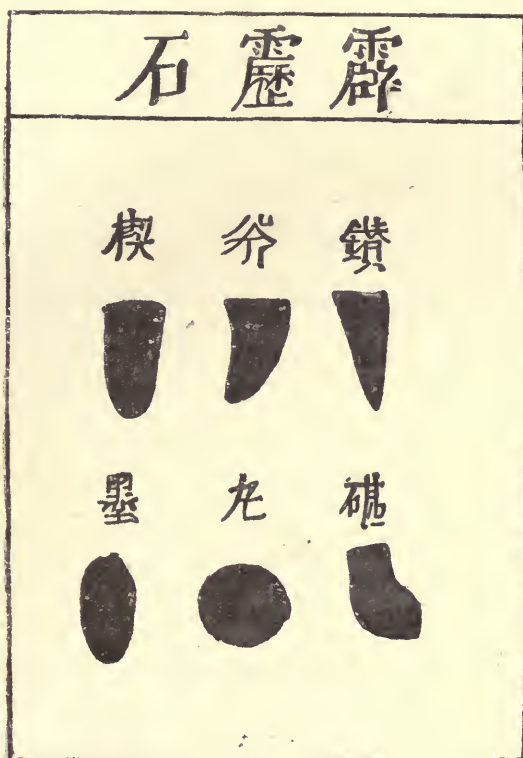 霹靂石
鑚 斧 楔
碪 丸 墨